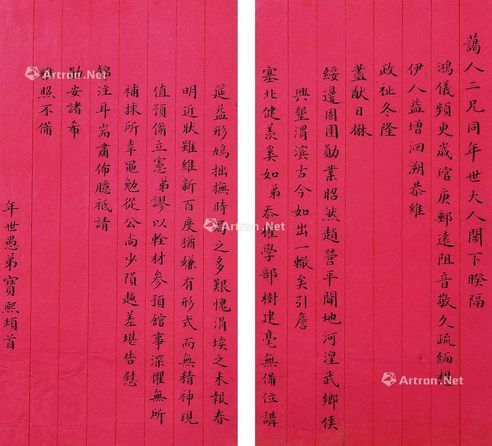 藹人二兄同年世大人閣下暌隔
鴻儀頻更歲琯庚郵遠阻音敬久疏緬想
伊人益增洄溯恭維
政祉冬隆
藎猷日楙
綏邊固圉勛業昭然趙營平闢地河湟武鄉侯
興墾渭濱古今如出一轍矣引詹
塞北健羨奚如弟忝權學部樹建毫無備位講
筵益形鳩拙撫時事之多艱愧涓埃之未報春
明近狀雖維新百度猶嫌有形式而無精神現
值預備立憲弟謬以輇材參預館事深懼無所
補捄所幸黽勉從公尚少隕越差堪告慰
錦注耳耑肅佈臆祗請
勛安諸希
雅照不備
年世愚弟寶熙頓首
Artron.Net
Artron.Net
Artron.Net
Artron.Net
Artron.Net